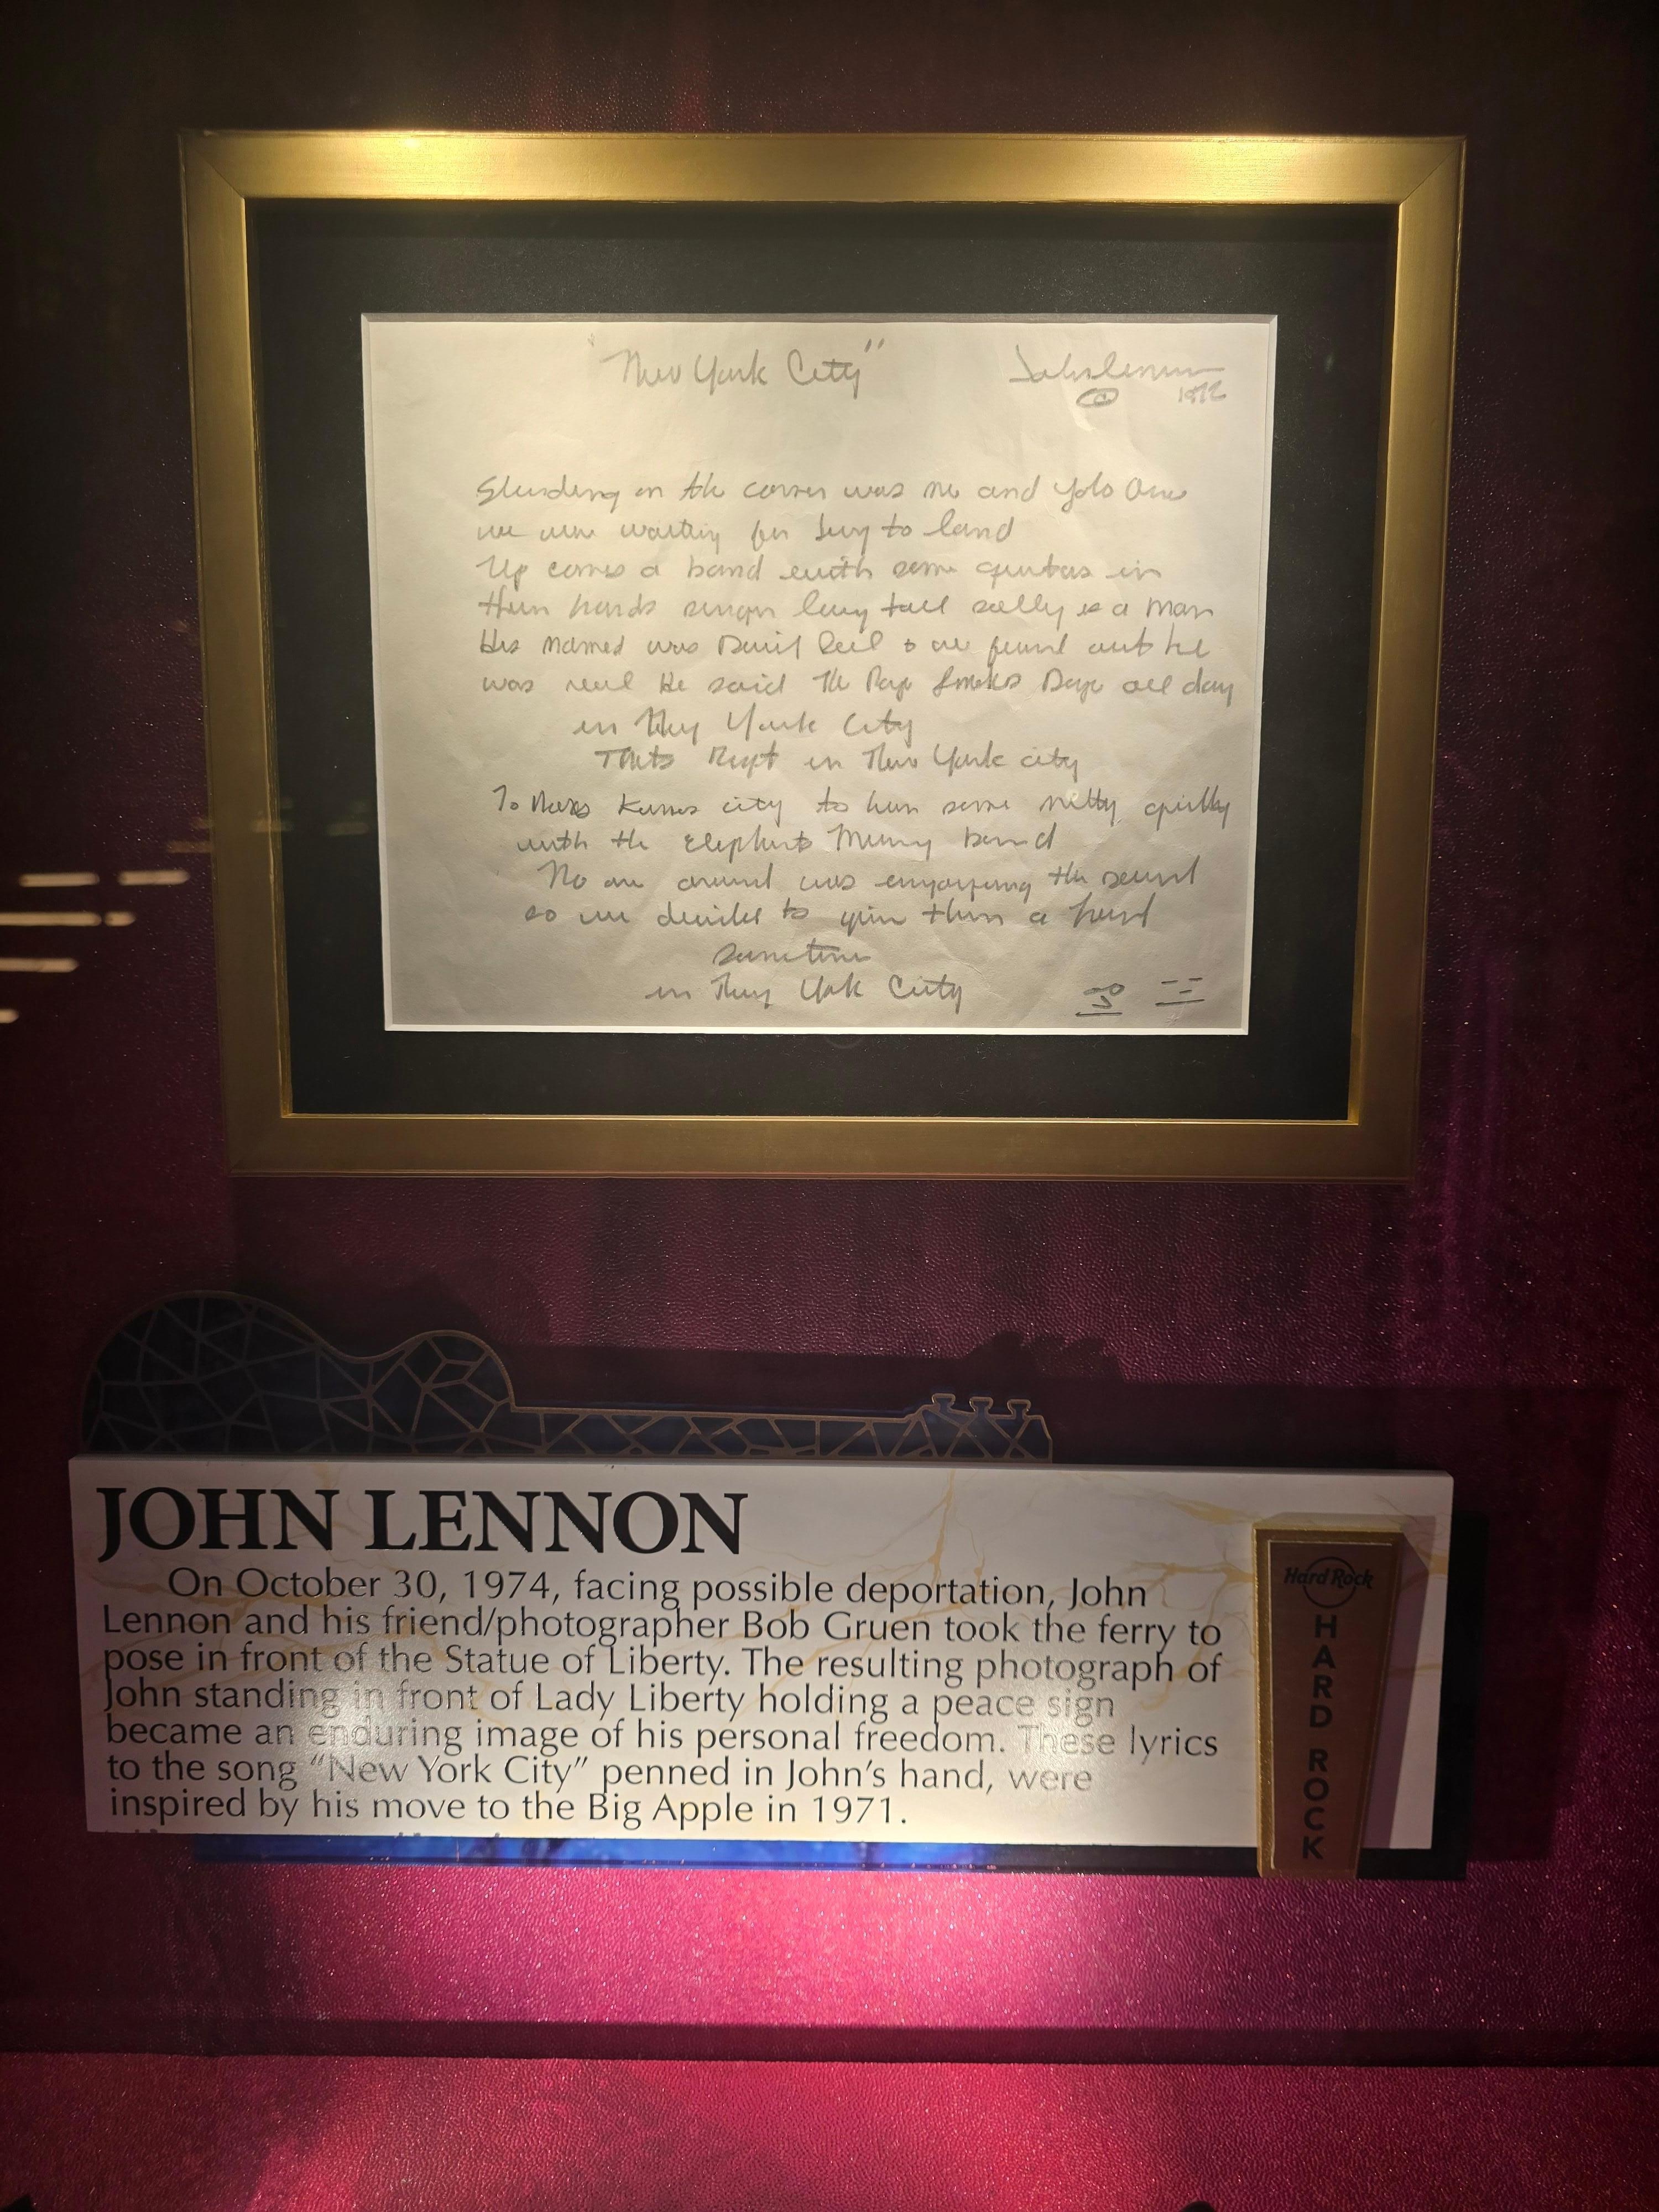 "New York City"
John Lennon
© 1972
Standing on the corner was me and Yoko Ono
we were waiting for Jerry to land
Up comes a band with some guitars in
their hands singin have tall sally is a man
His named was David Peel & we found out he
was real He said The Pope Smokes Dope all day
in New York City
Thats Right in New York city
To Maxs Kansas city to hear some nitty gritty
with the Elephants Memory band
No one around was enjoying the sound
so we decided to give them a hand
sometime
in New York City
JOHN LENNON
On October 30, 1974, facing possible deportation, John
Lennon and his friend/photographer Bob Gruen took the ferry to
pose in front of the Statue of Liberty. The resulting photograph of
John standing in front of Lady Liberty holding a peace sign
became an enduring image of his personal freedom. These lyrics
to the song “New York City” penned in John’s hand, were
inspired by his move to the Big Apple in 1971.
Hard Rock
HARD ROCK